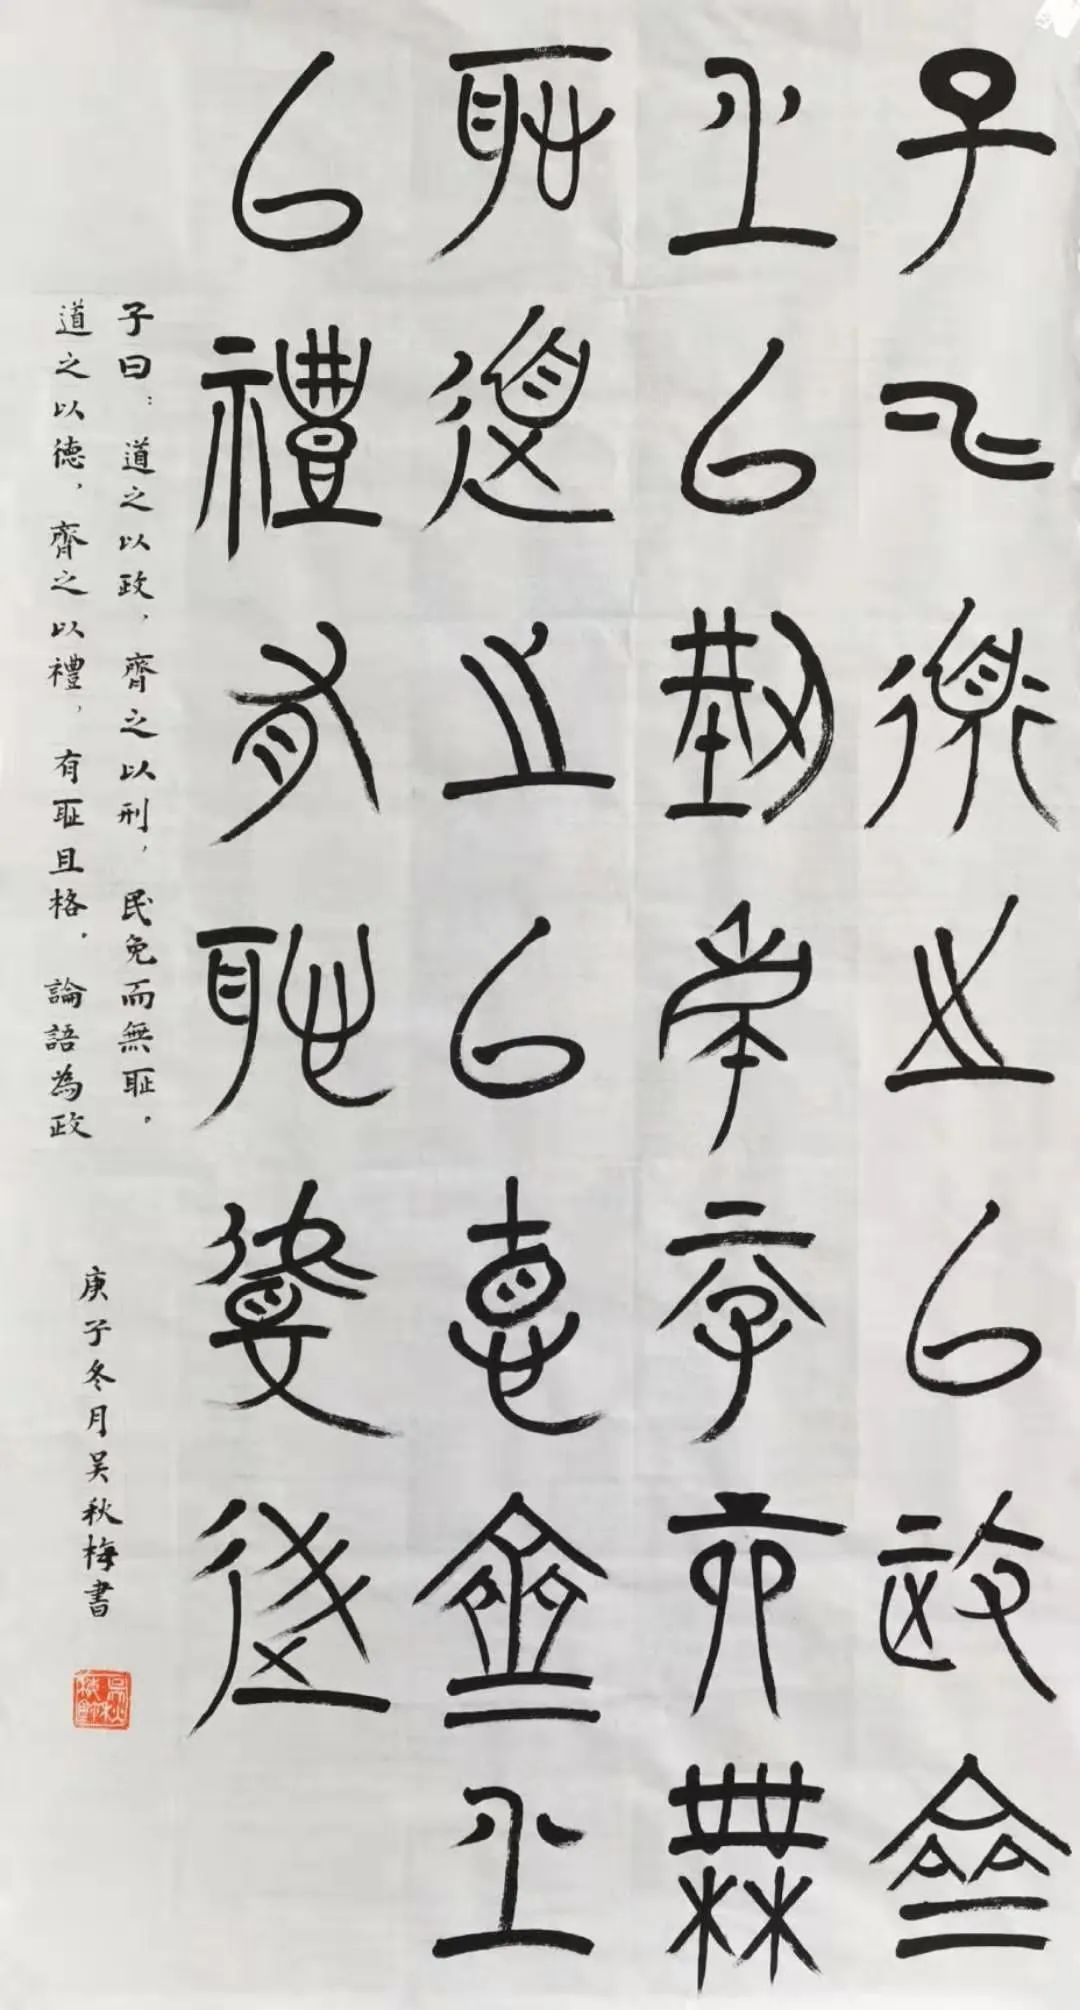 子曰道之以政齊
之以刑民免而無
恥道之以德齊之
以禮有恥且格
子曰：道之以政，齊之以刑，民免而無耻。
道之以德，齊之以禮，有耻且格。論語為政
庚子冬月吴秋梅書